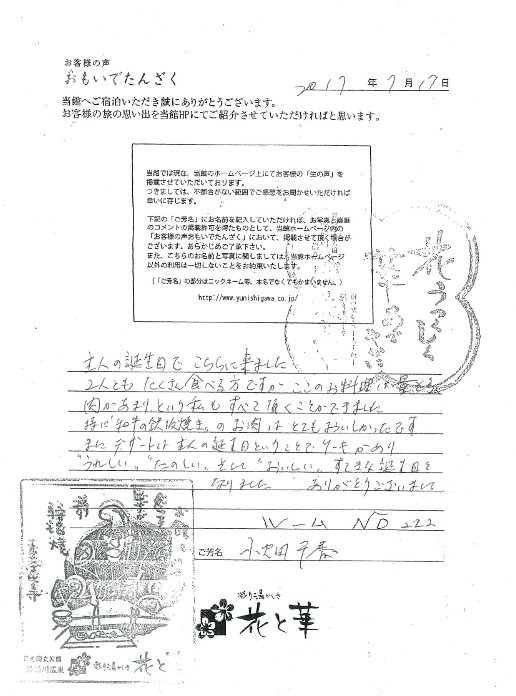 お客様の声
おもいでたんざく
2017 年 7 月 17 日
当館へご宿泊いただき誠にありがとうございます。
お客様の旅の思い出を当館HPにてご紹介させていただければと思います。
当館では現在、当館のホームページ上にてお客様の「生の声」を
掲載させていただいております。
つきましては、不都合がない範囲でご感想をお聞かせいただければ
幸いに存じます。
下記の「ご芳名」にお名前を記入していただければ、お写真と直筆
のコメントの掲載許可を得たものとして、当館ホームページ内の
「お客様の声おもいでたんざく」において、掲載させて頂く場合が
ございます。あらかじめご了承下さい。
また、こちらのお名前と写真に関しましては、当館ホームページ
以外の利用は一切しないことをお約束いたします。
(「ご芳名」の部分はニックネーム等、本名でなくてもかまいません。)
http://www.yunishigawa.co.jp/
主人の誕生日で こちらに来ました
2人とも たくさん食べる方ですが ここのお料理は
肉があまり という私も すべて頂くことができました
特に"和牛の鉄板焼き"の お肉は とてもおいしかったです
また デザートは 主人の誕生日ということで ケーキがあり
"うれしい"。"たのしい"。そして "おいしい"。すてきな誕生日と
なりました ありがとうございまして
ルーム NO 222
ご芳名
彩り湯かしき
花と華
日光国立公園
湯西川温泉
彩り湯かしき 花と